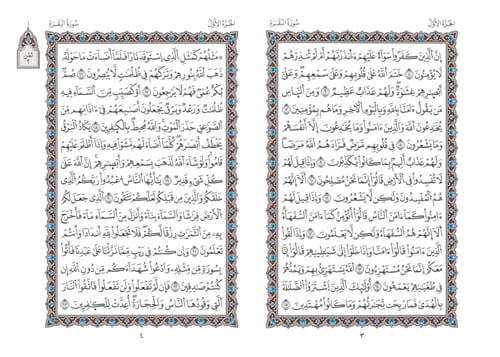 الجزء الأول
سورة البقرة
إِنَّ ٱلَّذِينَ كَفَرُوا۟ سَوَآءٌ عَلَيْهِمْ ءَأَنذَرْتَهُمْ أَمْ لَمْ تُنذِرْهُمْ
لَا يُؤْمِنُونَ ٦ خَتَمَ ٱللَّهُ عَلَىٰ قُلُوبِهِمْ وَعَلَىٰ سَمْعِهِمْ وَعَلَىٰٓ
أَبْصَٰرِهِمْ غِشَٰوَةٌ وَلَهُمْ عَذَابٌ عَظِيمٌ ٧ وَمِنَ ٱلنَّاسِ
مَن يَقُولُ ءَامَنَّا بِٱللَّهِ وَبِٱلْيَوْمِ ٱلْءَاخِرِ وَمَا هُم بِمُؤْمِنِينَ ٨
يُخَٰدِعُونَ ٱللَّهَ وَٱلَّذِينَ ءَامَنُوا۟ وَمَا يَخْدَعُونَ إِلَّآ أَنفُسَهُمْ
وَمَا يَشْعُرُونَ ٩ فِى قُلُوبِهِم مَّرَضٌ فَزَادَهُمُ ٱللَّهُ مَرَضًا
وَلَهُمْ عَذَابٌ أَلِيمٌۢ بِمَا كَانُوا۟ يَكْذِبُونَ ١٠ وَإِذَا قِيلَ لَهُمْ
لَا تُفْسِدُوا۟ فِى ٱلْأَرْضِ قَالُوٓا۟ إِنَّمَا نَحْنُ مُصْلِحُونَ ١١ أَلَآ إِنَّهُمْ
هُمُ ٱلْمُفْسِدُونَ وَلَٰكِن لَّا يَشْعُرُونَ ١٢ وَإِذَا قِيلَ لَهُمْ
ءَامِنُوا۟ كَمَآ ءَامَنَ ٱلنَّاسُ قَالُوٓا۟ أَنُؤْمِنُ كَمَآ ءَامَنَ ٱلسُّفَهَآءُ
أَلَآ إِنَّهُمْ هُمُ ٱلسُّفَهَآءُ وَلَٰكِن لَّا يَعْلَمُونَ ١٣ وَإِذَا لَقُوا۟
ٱلَّذِينَ ءَامَنُوا۟ قَالُوٓا۟ ءَامَنَّا وَإِذَا خَلَوْا۟ إِلَىٰ شَيَٰطِينِهِمْ قَالُوٓا۟ إِنَّا
مَعَكُمْ إِنَّمَا نَحْنُ مُسْتَهْزِءُونَ ١٤ ٱللَّهُ يَسْتَهْزِئُ بِهِمْ وَيَمُدُّهُمْ
فِى طُغْيَٰنِهِمْ يَعْمَهُونَ ١٥ أُو۟لَٰٓئِكَ ٱلَّذِينَ ٱشْتَرَوُا۟ ٱلضَّلَٰلَةَ
بِٱلْهُدَىٰ فَمَا رَبِحَت تِّجَٰرَتُهُمْ وَمَا كَانُوا۟ مُهْتَدِينَ ١٦
٣
الجزء الأول
سورة البقرة
مَثَلُهُمْ كَمَثَلِ ٱلَّذِى ٱسْتَوْقَدَ نَارًا فَلَمَّآ أَضَآءَتْ مَا حَوْلَهُۥ
ذَهَبَ ٱللَّهُ بِنُورِهِمْ وَتَرَكَهُمْ فِى ظُلُمَٰتٍ لَّا يُبْصِرُونَ ١٧ صُمٌّۢ
بُكْمٌ عُمْىٌ فَهُمْ لَا يَرْجِعُونَ ١٨ أَوْ كَصَيِّبٍ مِّنَ ٱلسَّمَآءِ فِيهِ
ظُلُمَٰتٌ وَرَعْدٌ وَبَرْقٌ يَجْعَلُونَ أَصَٰبِعَهُمْ فِىٓ ءَاذَانِهِم مِّنَ
ٱلصَّوَٰعِقِ حَذَرَ ٱلْمَوْتِ وَٱللَّهُ مُحِيطٌۢ بِٱلْكَٰفِرِينَ ١٩ يَكَادُ ٱلْبَرْقُ
يَخْطَفُ أَبْصَٰرَهُمْ كُلَّمَآ أَضَآءَ لَهُم مَّشَوْا۟ فِيهِ وَإِذَآ أَظْلَمَ عَلَيْهِمْ
قَامُوا۟ وَلَوْ شَآءَ ٱللَّهُ لَذَهَبَ بِسَمْعِهِمْ وَأَبْصَٰرِهِمْ إِنَّ ٱللَّهَ عَلَىٰ
كُلِّ شَىْءٍ قَدِيرٌ ٢٠ يَٰٓأَيُّهَا ٱلنَّاسُ ٱعْبُدُوا۟ رَبَّكُمُ ٱلَّذِى
خَلَقَكُمْ وَٱلَّذِينَ مِن قَبْلِكُمْ لَعَلَّكُمْ تَتَّقُونَ ٢١ ٱلَّذِى جَعَلَ لَكُمُ
ٱلْأَرْضَ فِرَٰشًا وَٱلسَّمَآءَ بِنَآءً وَأَنزَلَ مِنَ ٱلسَّمَآءِ مَآءً فَأَخْرَجَ
بِهِۦ مِنَ ٱلثَّمَرَٰتِ رِزْقًا لَّكُمْ فَلَا تَجْعَلُوا۟ لِلَّهِ أَندَادًا وَأَنتُمْ
تَعْلَمُونَ ٢٢ وَإِن كُنتُمْ فِى رَيْبٍ مِّمَّا نَزَّلْنَا عَلَىٰ عَبْدِنَا فَأْتُوا۟
بِسُورَةٍ مِّن مِّثْلِهِۦ وَٱدْعُوا۟ شُهَدَآءَكُم مِّن دُونِ ٱللَّهِ إِن
كُنتُمْ صَٰدِقِينَ ٢٣ فَإِن لَّمْ تَفْعَلُوا۟ وَلَن تَفْعَلُوا۟ فَٱتَّقُوا۟ ٱلنَّارَ
ٱلَّتِى وَقُودُهَا ٱلنَّاسُ وَٱلْحِجَارَةُ أُعِدَّتْ لِلْكَٰفِرِينَ ٢٤
٤